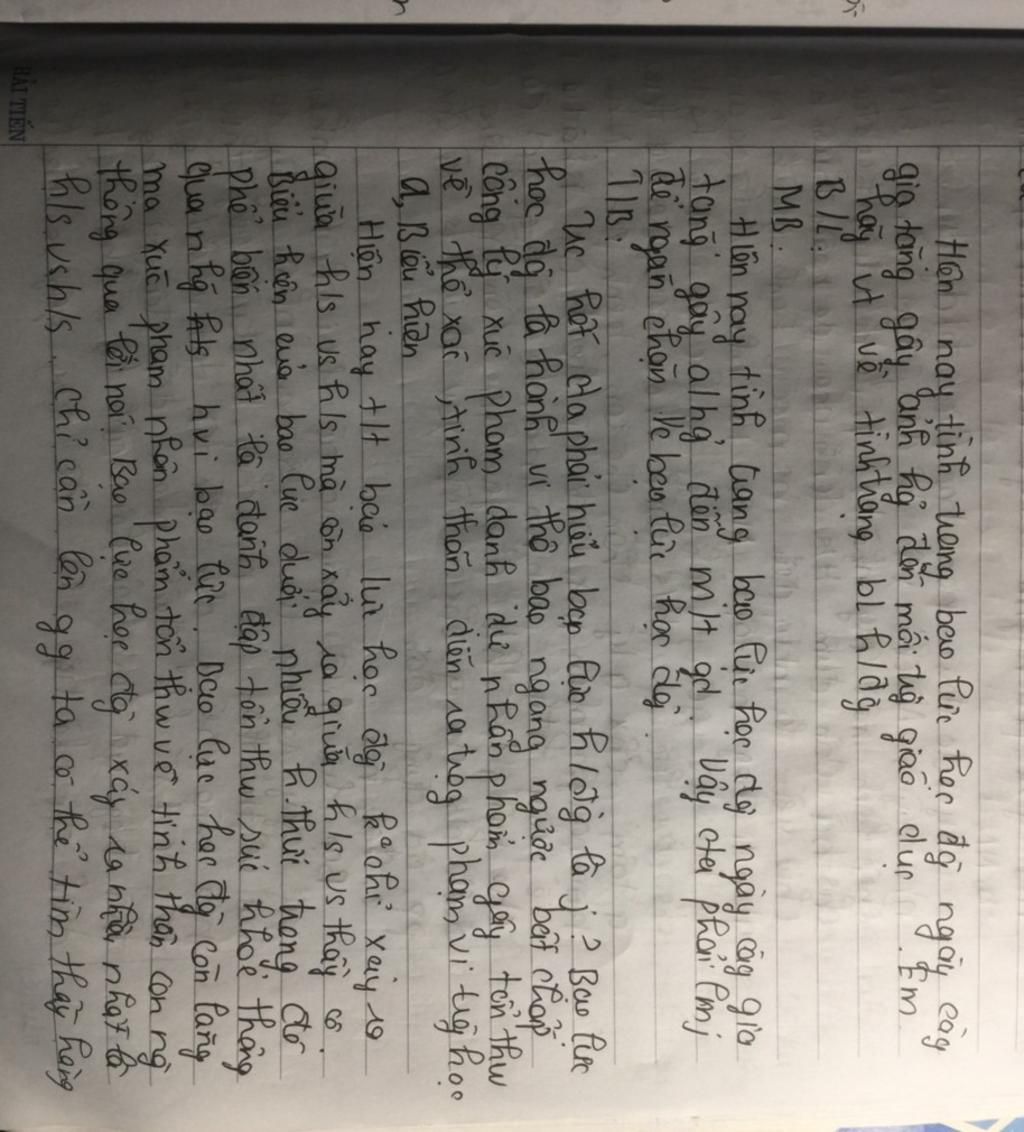 Hiện nay tình trạng bạo lực học đg ngày càng
gia tăng gây ảnh hg đến môi tg giáo dục. Em
hãy vt về tình trạng bl h/đg
B/L:
MB:
Hiện nay tình trạng bạo lực học đg ngày càng gia
tăng gây a/hg đến m/t gd. Vậy cta phải lmj
để ngăn chặn v/c bạo lực học đg.
T/B:
Trc hết cta phải hiểu bạo lực h/đg là j? Bạo lực
học đg là hành vi thô bạo ngang ngược bất chấp
công lý xúc phạm danh dự nhân phẩm gây tổn thw
về thể xác, tinh thần diễn ra trog phạm vi tg học
a, Biểu hiện
Hiện nay t/t bạo lực học đg ko chỉ xảy ra
giữa h/s vs h/s mà còn xảy ra giữa h/s vs thầy cô.
Biểu hiện của bạo lực dưới nhiều h.thức trong đó
phổ biến nhất là đánh đập tổn thw sức khoẻ thông
qua nhg hvi bạo lực. Bạo lực học đg còn lăng
mạ xúc phạm nhân phẩm tổn thw về tinh thần con ng
thông qua lời nói. Bạo lực học đg xảy ra nhiều nhất là
h/s vs h/s. chỉ cần lên gg ta có thể tìm thấy hàng
HẢI TIẾN